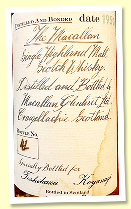 Distilled And Bonded
date 19
The Macallan
Single Highland Malt
Scotch Whisky
Distilled and Bottled by
Macallan Glenlivet plc
Craigellachie Scotland.
Bottle No.
Specially Bottled for
Toshikazu Koyanagi
Bottled in Scotland